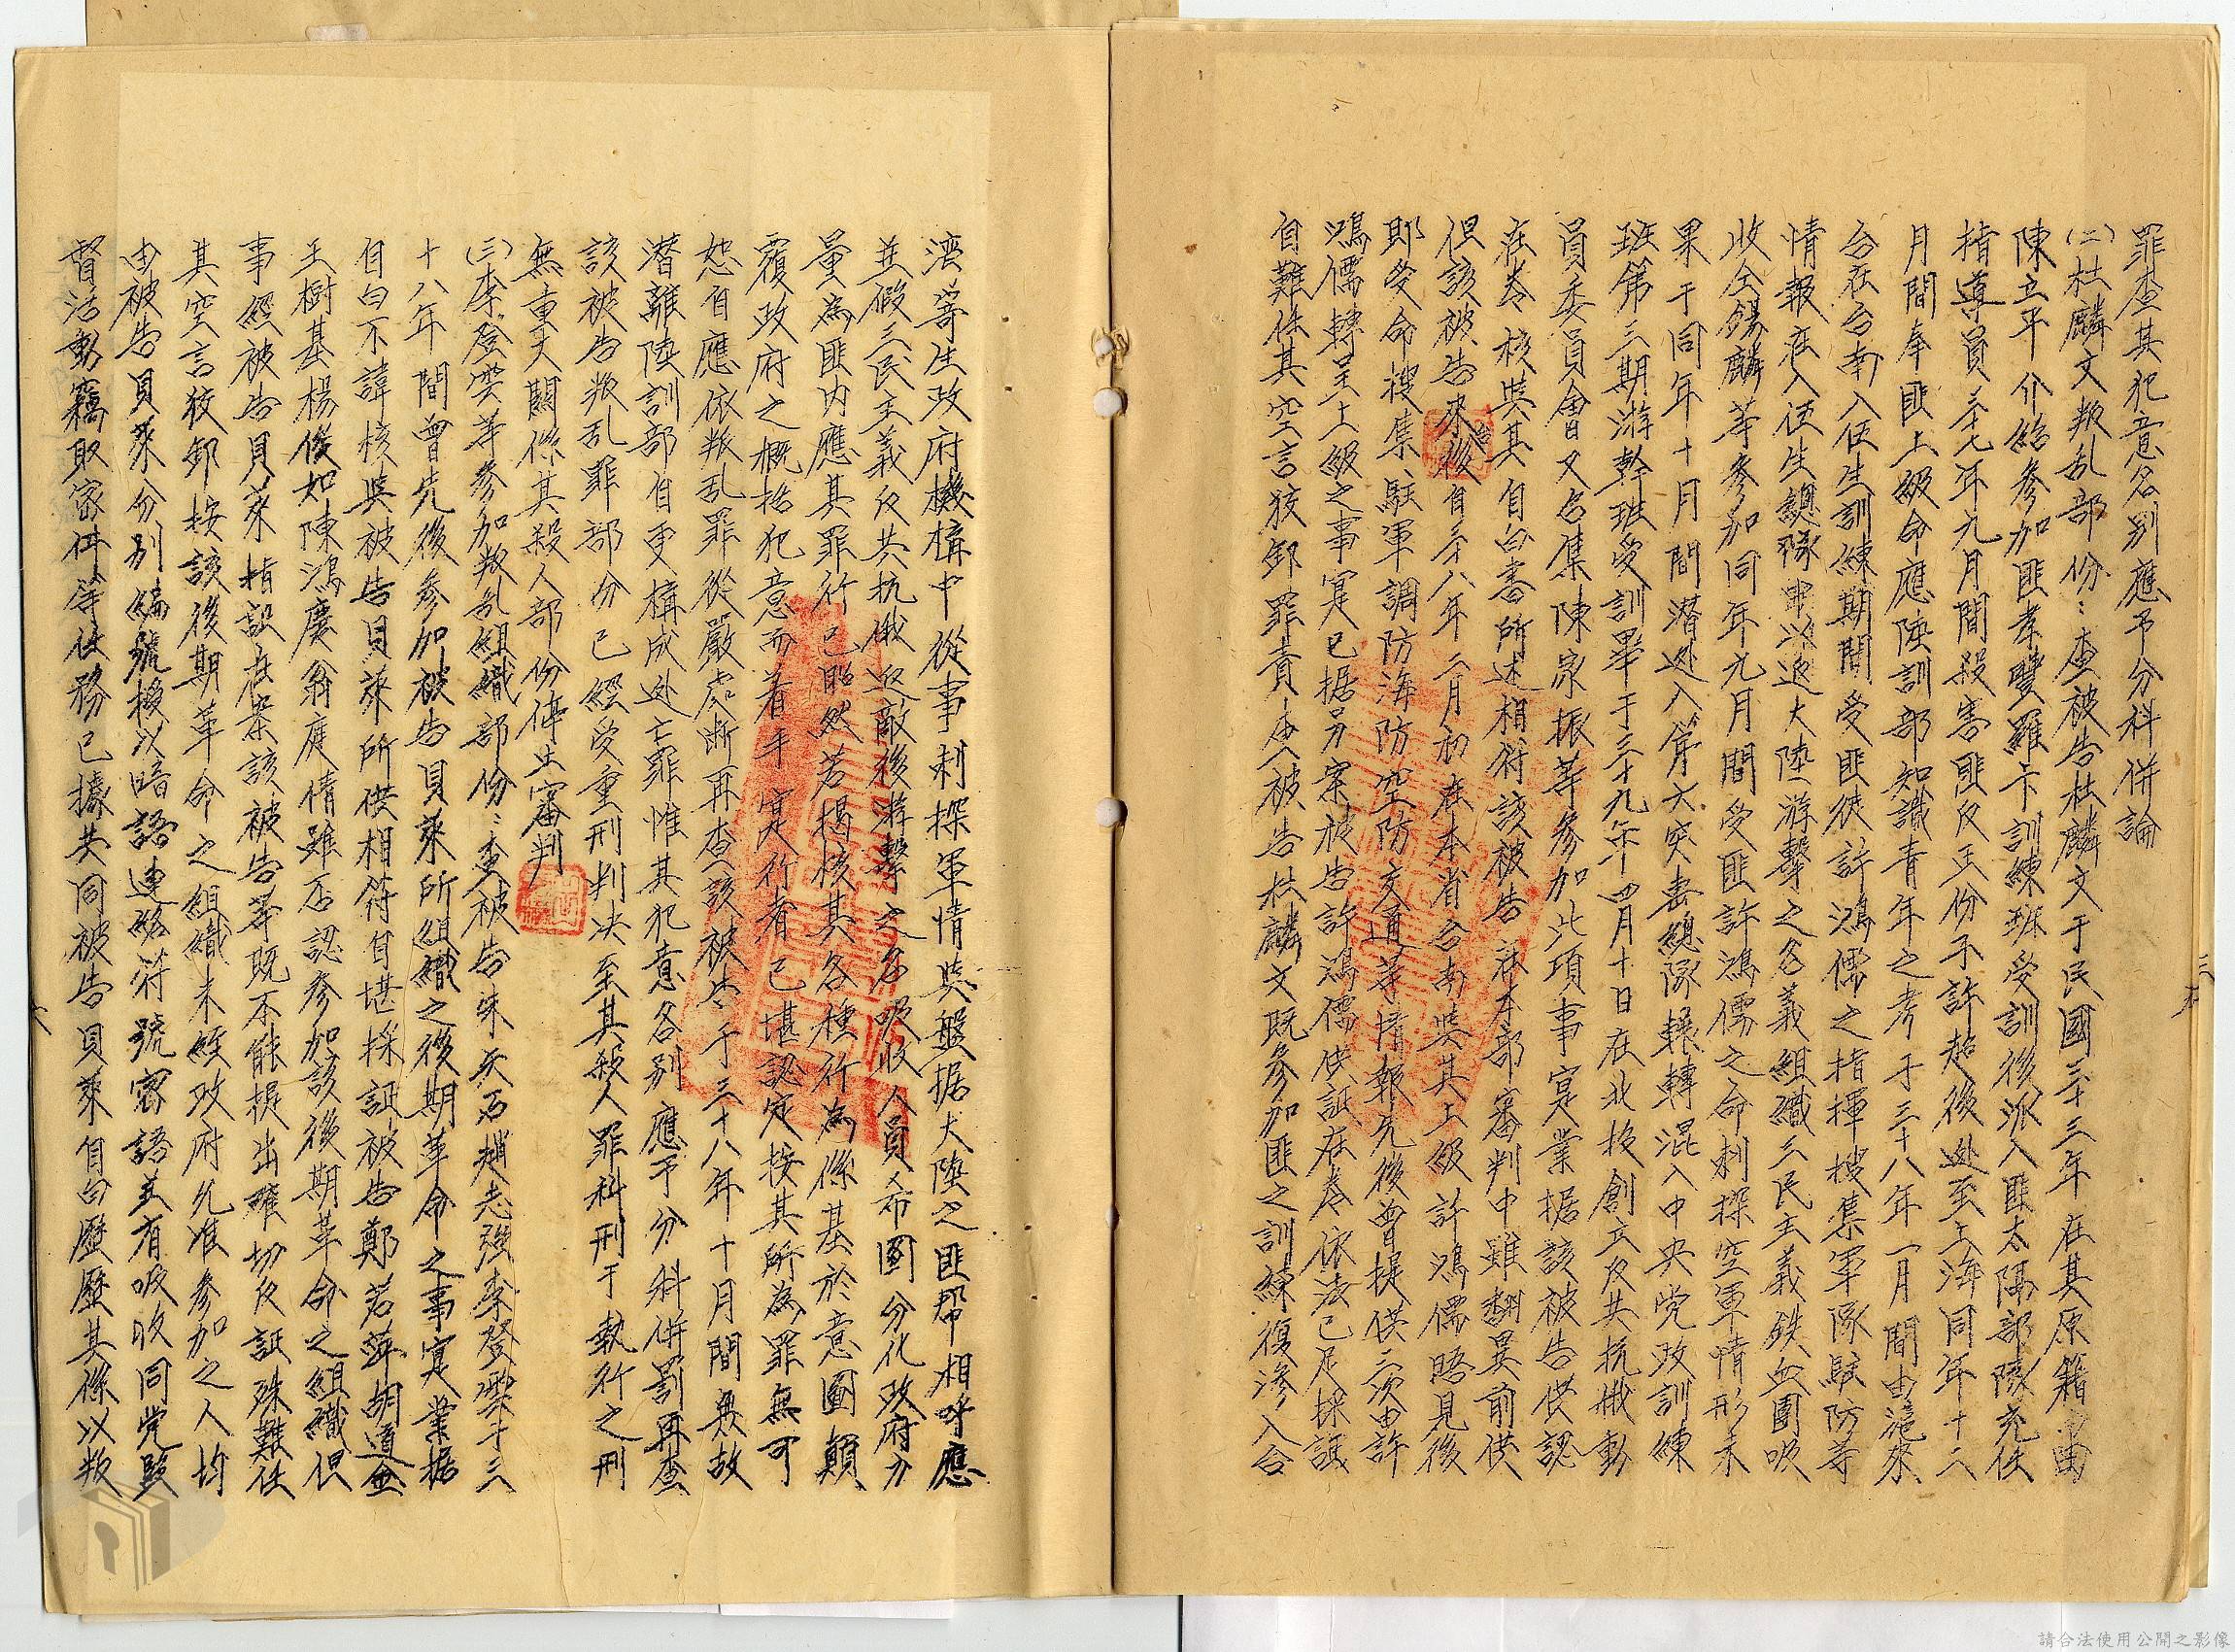 罪查其犯意各別應予分科併論
(二)杜麟文叛乱部份：查被告杜麟文于民國三十三年在其原籍由
陳立平介紹參加匪孝豐羅卡訓練班受訓後派入匪太隔部隊充任
指導員三十七年九月間殺害匪反正份子許超後逃至上海同年十二
月間奉匪上級命應陸訓部知識青年之考于三十八年一月間由滬來
台在台南入伍生訓練期間受匪徒許鴻儒之指揮搜集軍隊駐防等
情報在入伍生總隊串以返大陸游擊之名義組織三民主義鉄血團吸
收仝錫麟等參加同年九月間受匪許鴻儒之命刺探空軍情形未
果于同年十月間潛逃入第六突击總隊輾轉混入中央党政訓練
班第三期游幹班受訓畢于三十九年四月十日在北投創立反共抗俄動
員委員會且又召集陳家振等參加此項事寔業据該被告供認
在卷核與其自白書所述相符該被告在本部審判中雖翻異前供
但該被告來台後自三十八年二月初在本省台南與其上級許鴻儒晤見後
即受命搜集駐軍調防海防空防交通等情報先後曾提供三次由許
鴻儒轉呈上級之事寔已据另案被告許鴻儒供証在卷依法已足採証
自難任其空言狡卸罪責再被告杜麟文既參加匪之訓練復滲入台
濟等生政府機構中從事刺探軍情與盤据大陸之匪帮相呼應
並假三民主義反共抗俄返敵後游擊之名吸收人員希圖分化政府力
量為匪內應其罪行已昭然若揭核其各種行為係基於意圖顛
覆政府之概括犯意而着手寔行者已堪認定按其所為罪無可
恕自應依叛乱罪從嚴處断再查該被告于三十八年十月間無故
潛離陸訓部自更構成逃亡罪惟其犯意各別應予分科併罰再查
該被告叛乱罪部分已經受重刑判决至其殺人罪科刑于執行之刑
無重大關係其殺人部份停止審判
(三)李登雲等參加叛乱組織部份：查被告朱矢石趙志強李登雲于三
十八年間曾先後參加被告貝萊所組織之後期革命之事寔業据
自白不諱核與被告貝萊所供相符自堪採証被告鄭若萍胡道金
王樹基楊俊如陳鴻慶翁度情雖否認參加該後期革命之組織但
事經被告貝萊指訴在案該被告等既不能提出確切反証殊難任
其空言狡卸按該後期革命之組織未經政府允准參加之人均
由被告貝萊分別編號授以暗語連絡符號密語並有吸收同党監
督活動竊取密件等任務已據共同被告貝萊自白歷歷其係以叛
請合法使用公開之影像